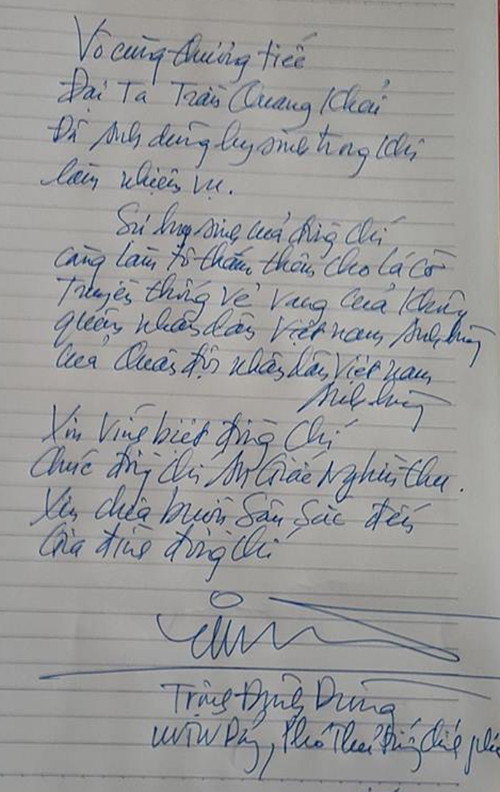 Vô cùng thương tiếc
Đại Tá Trần Quang Khải
Đã Anh dũng hy sinh trong khi
làm nhiệm vụ.
Sự hy sinh của đồng chí
càng làm tô thắm thêm cho lá cờ
Truyền thống vẻ vang của Không
quân nhân dân Việt nam Anh hùng
của Quân đội nhân dân Việt nam
Anh hùng
Xin Vĩnh biệt đồng Chí
Chúc đồng chí An Giấc Nghìn thu.
Xin chia buồn Sâu Sắc đến
Gia đình đồng chí
Trịnh Đình Dũng
UVTW Đảng, Phó Thủ tướng Chính phủ